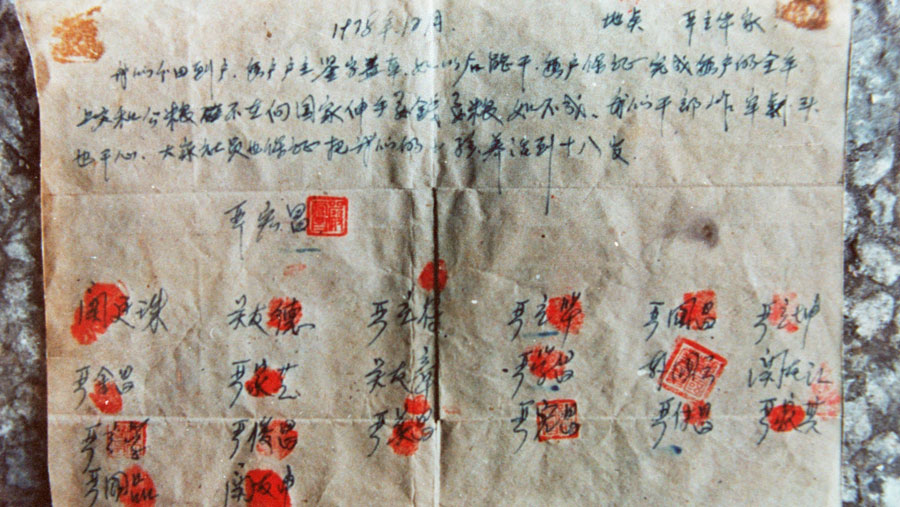 1978年12月. 地点 严立华家.
我们分田到户,每户户主签字盖章,如以后能干,每户保证完成每户的全年
上交和公粮 不在向国家伸手要钱要粮 如不成,我们干部作牢 头
也干心,大家社员也保证把我们的小孩养活到十八岁.
严宏昌
关廷珠 关友德 严立符 严立华 严国昌 严立坤
严金昌 严家芝 关友章 严学昌 韩国云 关友江
严立学 严俊昌 严美昌 严宏昌 严付昌 严家其
严国品 关友申